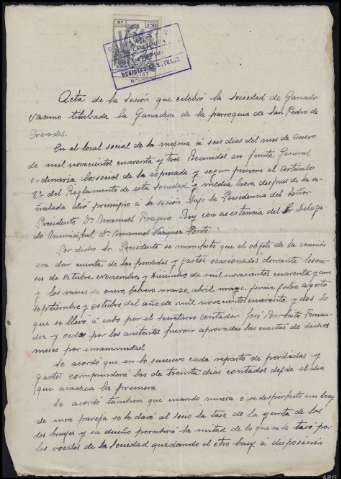 Acta de la sesión que celebró la sociedad de Ganado
vacuno titulada la Ganadera de la parroquia de San Pedro de
En el local social de la misma a seis dias del mes de Enero
de mil novecientos cuarenta y tres Reunidos en Junta General
ordinaria los socios de la expresada y segun previene el artículo
12 del Reglamento de esta Sociedad y media hora despues de la se
ñalada dio principio a la sesión bajo la Presidencia del Señor
Presidente D. Manuel Puy con asistencia del Delega
do Municipal D. Manuel Vazquez
Por dicho Sr Presidente se manifestó que el objeto de la reunión
era dar cuenta de las perdidas y gastos ocasionados durante los me
ses de Octubre noviembre y de mil novecientos cuarenta y
y los meses de enero, febrero marzo, abril, mayo, junio julio agosto
septiembre y octubre del año de mil novecientos cuarenta y dos lo
que se llevó a cabo por el secretario contador José
y oidas por los asistentes fueron aprobadas las cuentas de dichos
meses por unanimidad.
Se acordó que en lo sucesivo cada reparto de perdidas y
gastos comprenderá los de treinta dias contados desde el dia
que acaezca la primera
Se acordó tambien que cuando muera o se desperfeccione un buey
de una pareja se
bueyes y su dueño percibirá la mitad de lo que se tasó por
los vocales de la sociedad quedando el otro buey a disposición